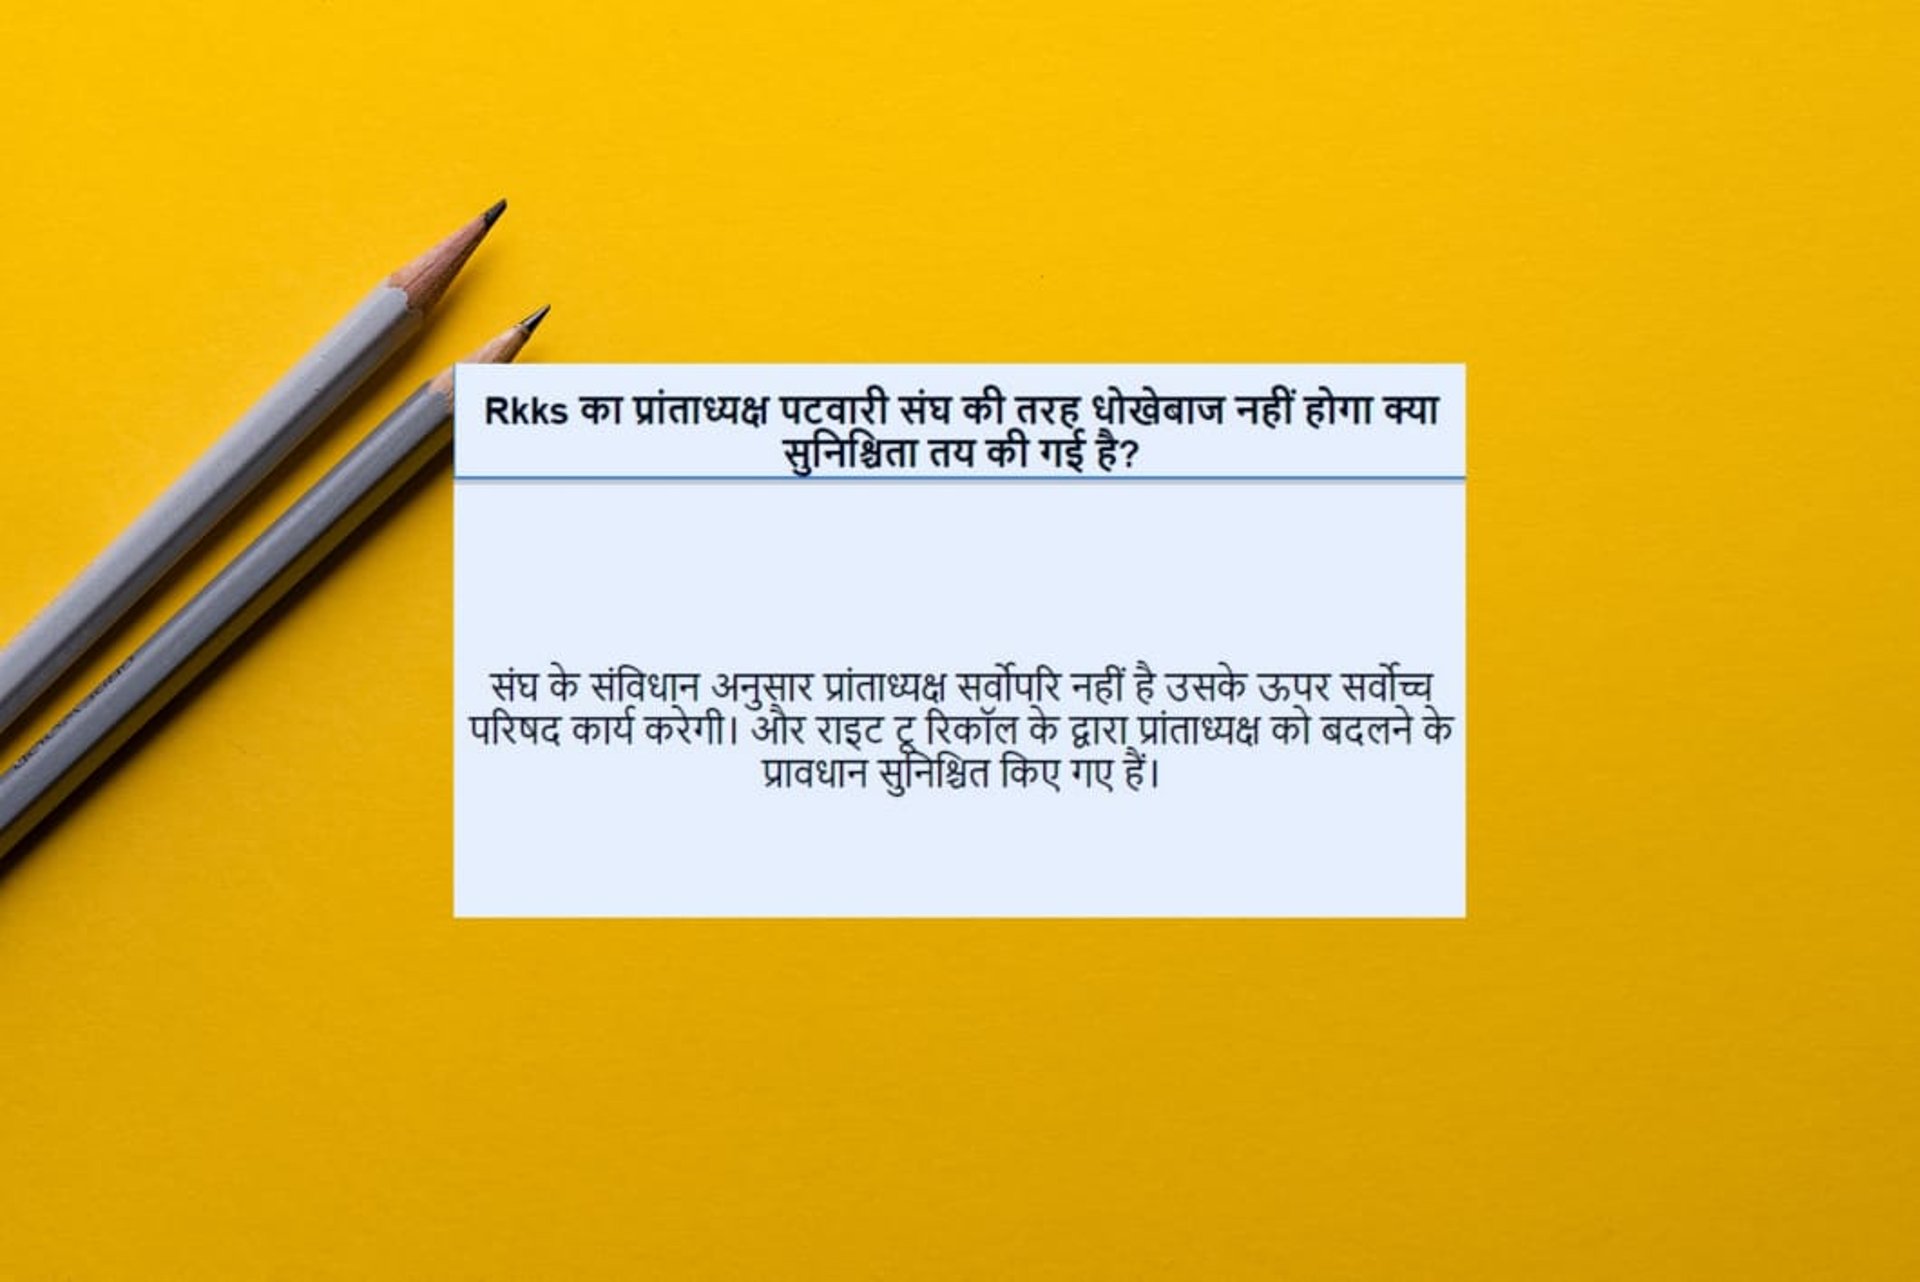 Rkks का प्रांताध्यक्ष पटवारी संघ की तरह धोखेबाज नहीं होगा क्या
सुनिश्चिता तय की गई है?
संघ के संविधान अनुसार प्रांताध्यक्ष सर्वोपरि नहीं है उसके ऊपर सर्वोच्च
परिषद कार्य करेगी। और राइट टू रिकॉल के द्वारा प्रांताध्यक्ष को बदलने के
प्रावधान सुनिश्चित किए गए हैं।